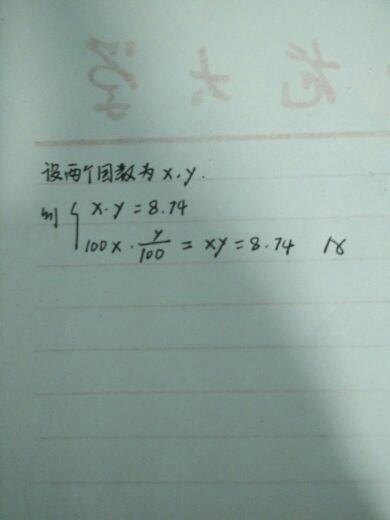 设两个因数为x,y.
则{x·y=8.74
100x·y/100=xy=8.74